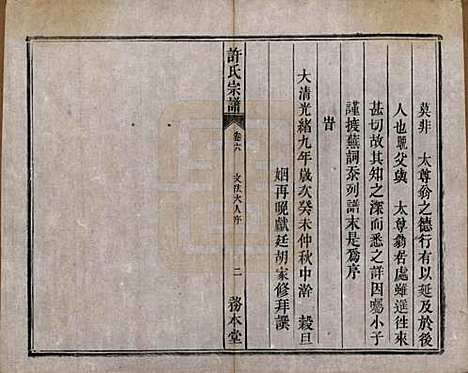 莫非　太尊翁之德行有以延及於後
人也鳳父與　太尊翁居處雖遥往來
甚切故其知之深而悉之詳因囑小子
謹摭蕪詞忝列譜末是為序
旹
大清光緒九年歲次癸未仲秋中澣　穀旦
姻再晚獻廷胡家修拜譔
許氏宗譜
卷六
文法大人序
二
務本堂